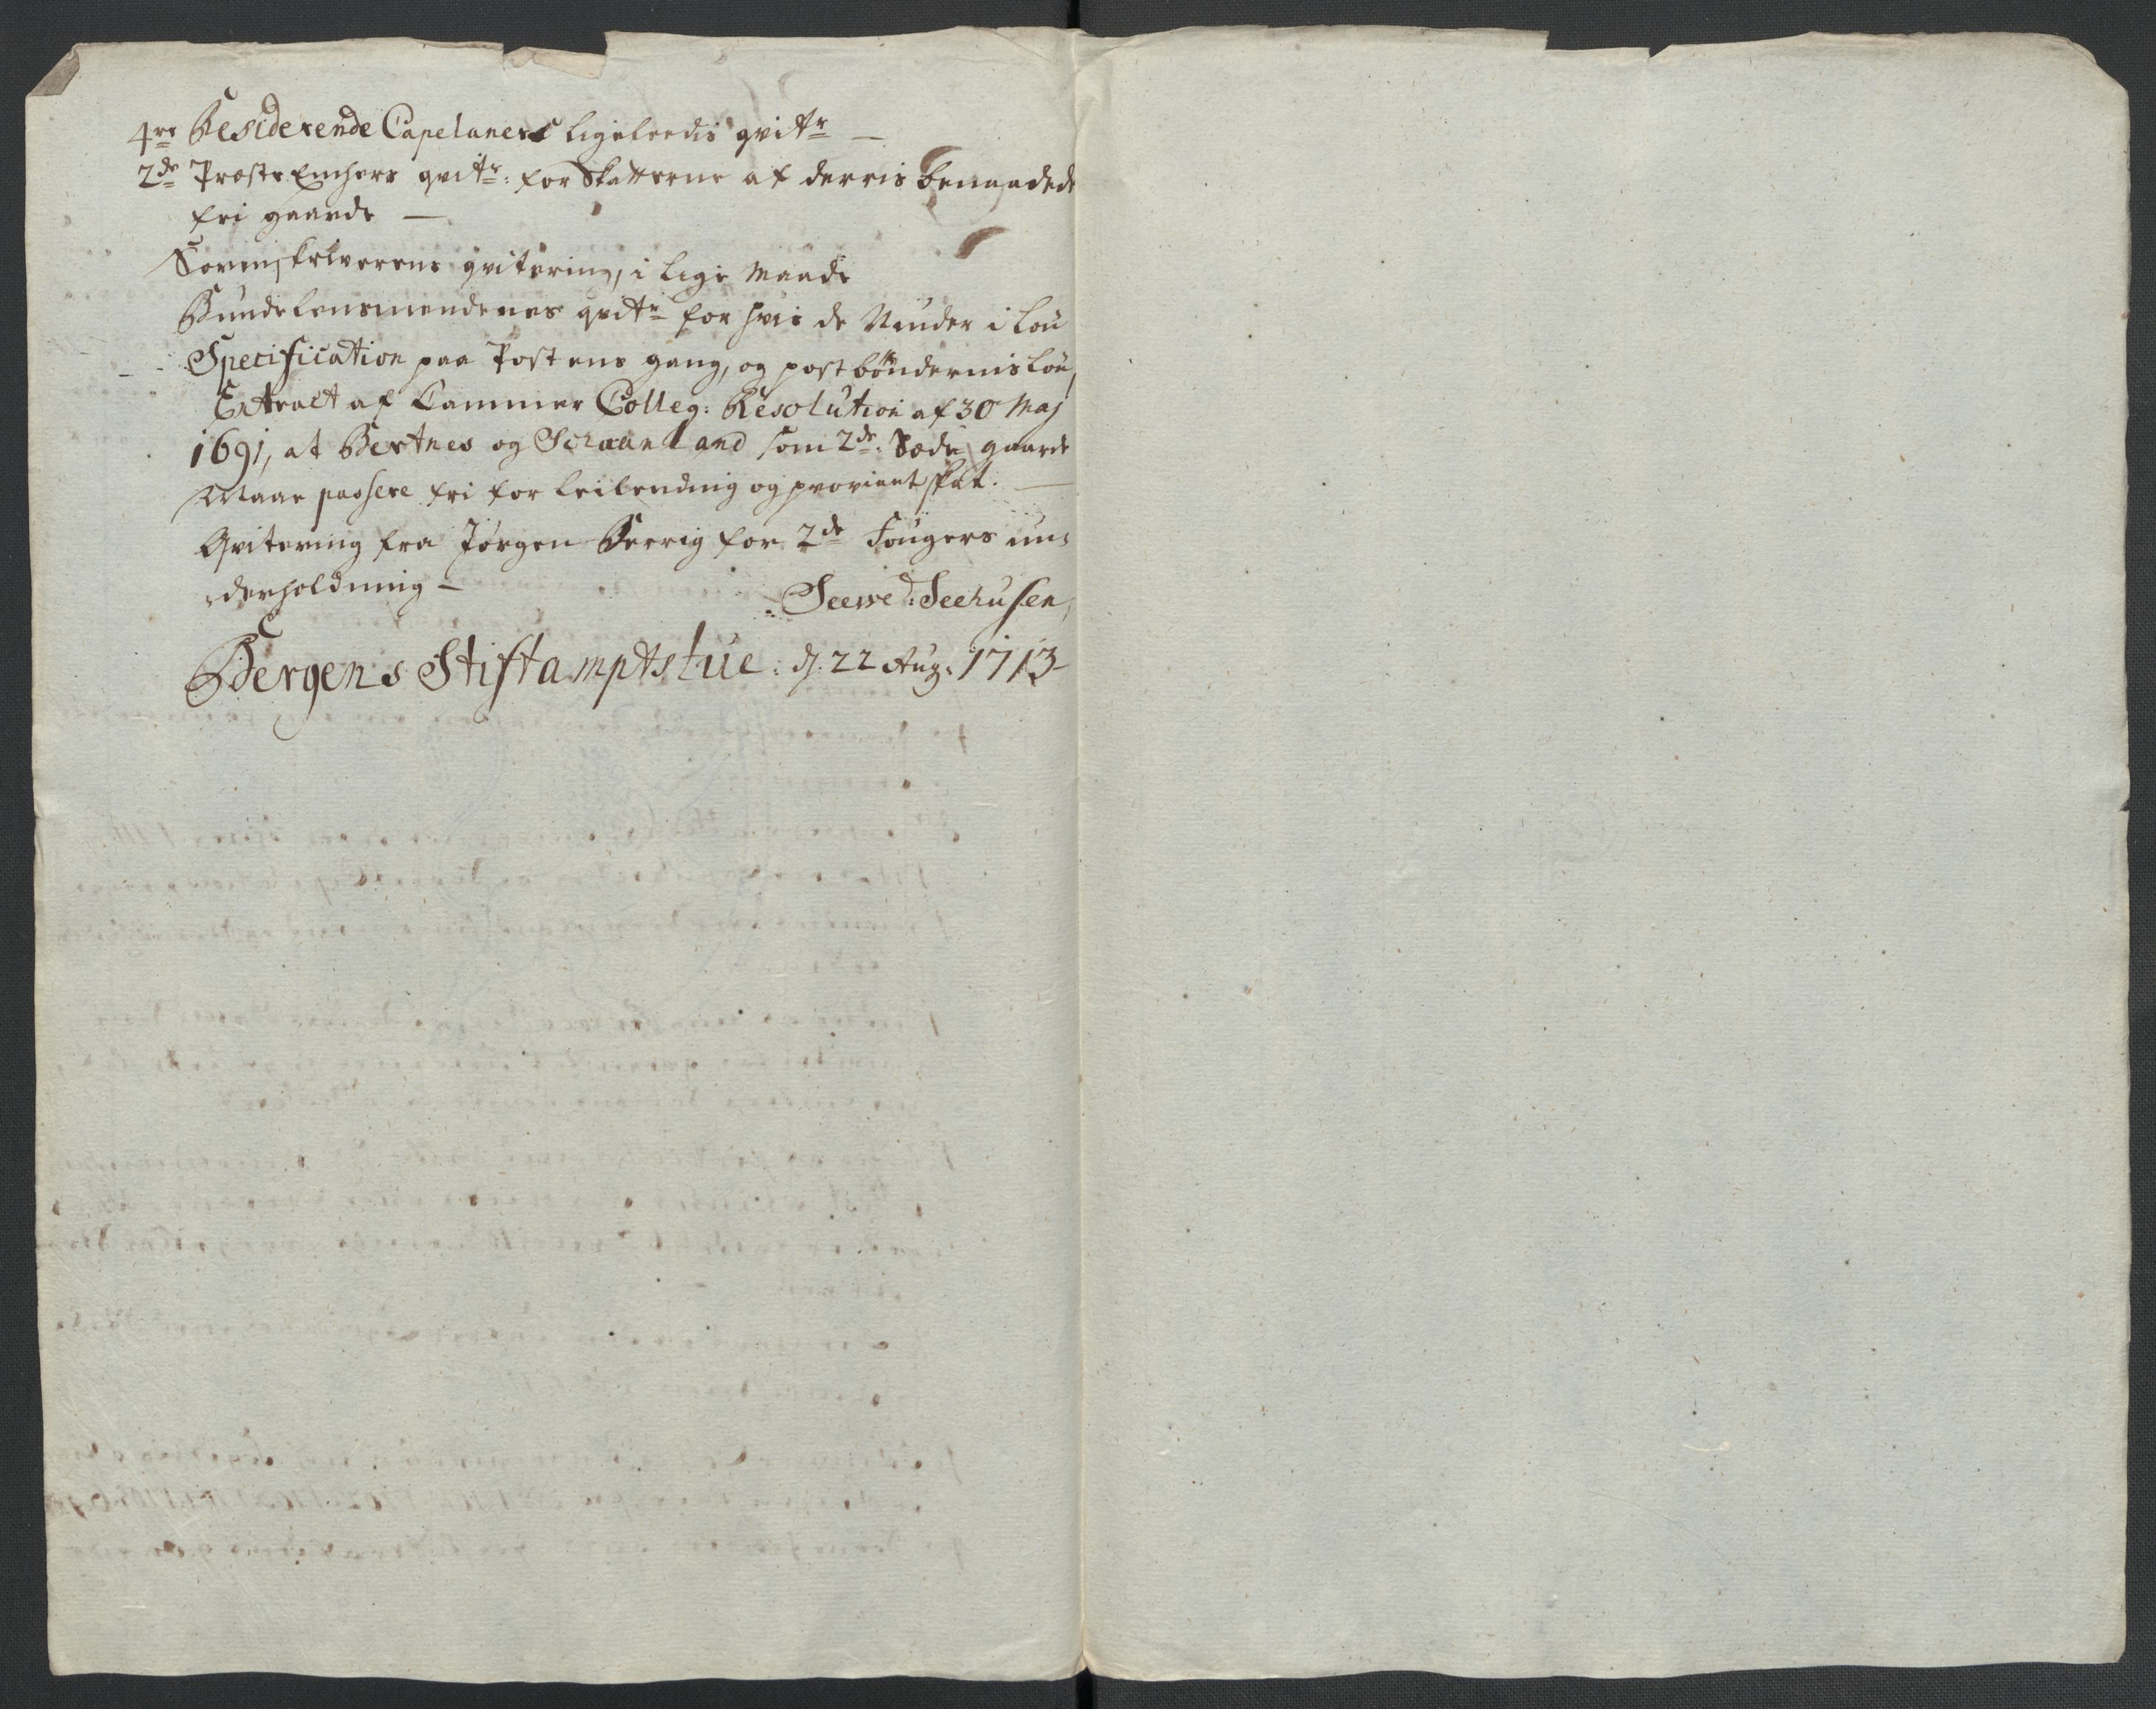 4re Residerende Capelaners ligeleedis qvitr
2de Præste Enchers qvitr: for Skatterne af derris benaadede
fri gaarde
Sorenskriverens qvitering, i lige maade
Bundelensmendenes qvitr for hvis de Nyder i løn
Specification paa Postens gang, og postbøndernis løn,
Extract af Cammer Colleg: Resolution af 30 Maj
1691, at Bertnes og Schaanland som 2de Sæde gaarde
Maae passere fri for leilending og proviant skat.
Qvitering fra Jørgen for 2de fougers un:
derholdning
Seehusen
Bergens Stiftamptstue: d: 22 Aug: 1713